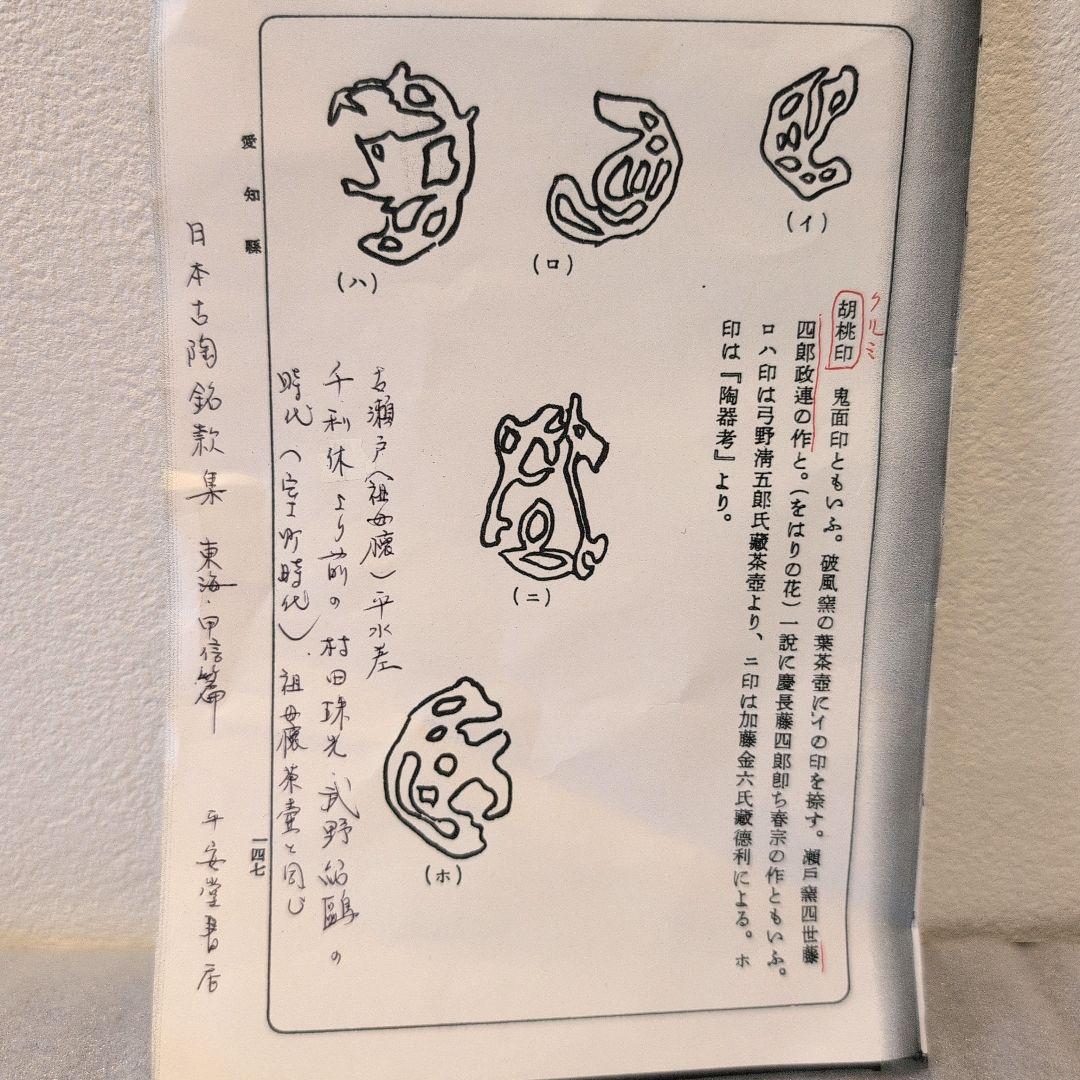 クルミ
胡桃印　鬼面印ともいふ。破風窯の葉茶壺にイの印を捺す。瀬戸窯四世藤
四郎政連の作と。（をはりの花）一説に慶長藤四郎卽ち春宗の作ともいふ。
ロハ印は弓野淸五郎氏藏茶壺より、ニ印は加藤金六氏藏德利による。ホ
印は『陶器考』より。
（イ）
（ロ）
（ハ）
（ニ）
（ホ）
古瀬戸（祖母懐）平水差
千利休より前の村田珠光、武野紹鷗の
時代（室町時代）．祖母懐茶壷と同じ
愛知縣
一四七
日本古陶銘款集　東海・甲信篇　平安堂書店